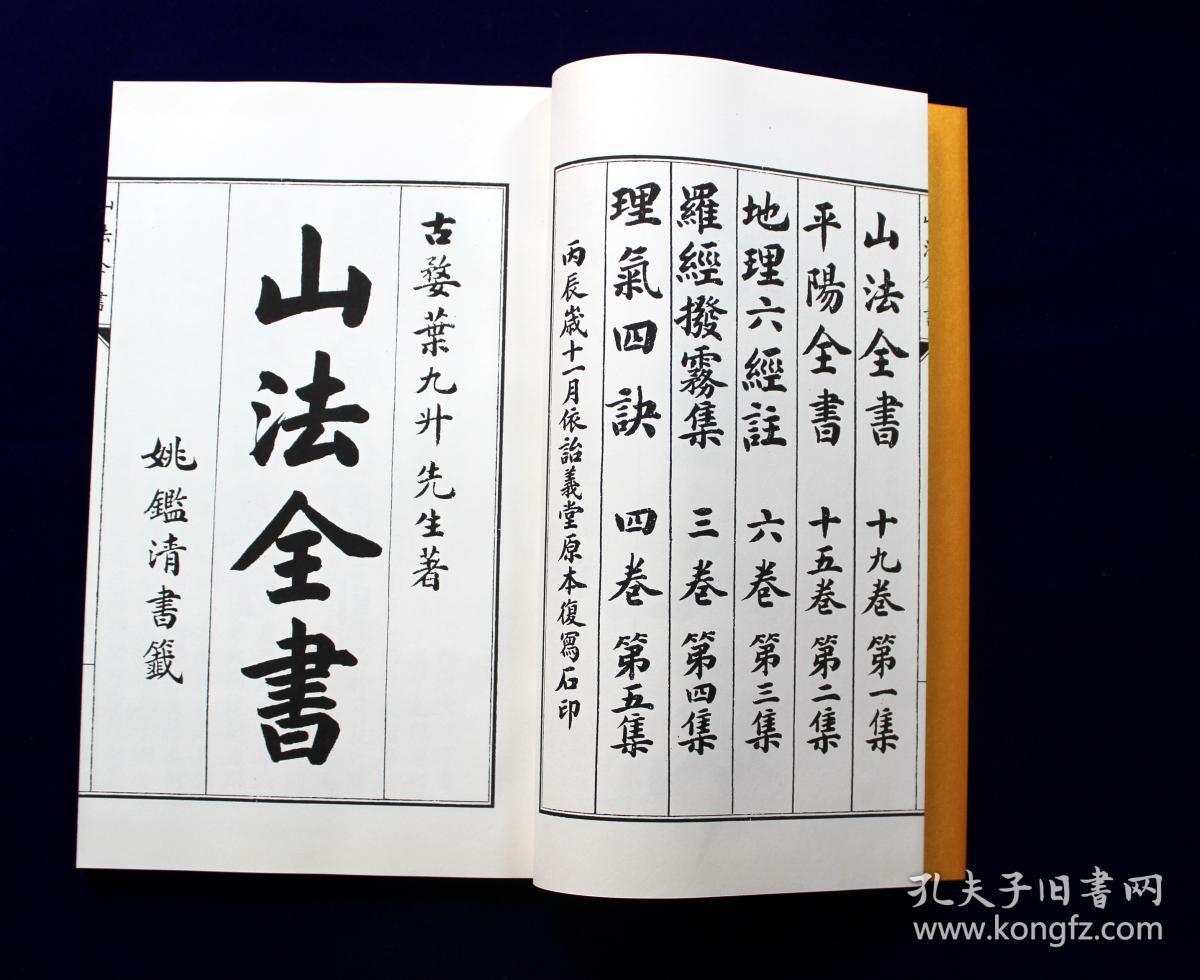 山法全書 十九卷 第一集
平陽全書 十五卷 第二集
地理六經註 六卷 第三集
羅經撥霧集 三卷 第四集
理氣四訣 四卷 第五集
丙辰歲十一月依詒義堂原本復寫石印
古婺葉九升先生著
山法全書
姚鑑清書籤
山法全書
孔夫子旧书网
www.kongfz.com